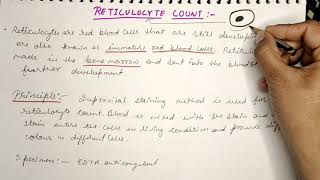 RETICULOCYTE COUNT :-
Reticulocytes are red blood cells that are still developing
are also known as immature red blood cells. Reticulo
made in the bone marrow and sent into the blood
further development
Principle:- Supravital staining method is used for
reticulocyte count. Blood is mixed with the stain and
stain enters the cells in living condition and provide diff
colour to different cells.
Specimen:- EDTA anticoagulant